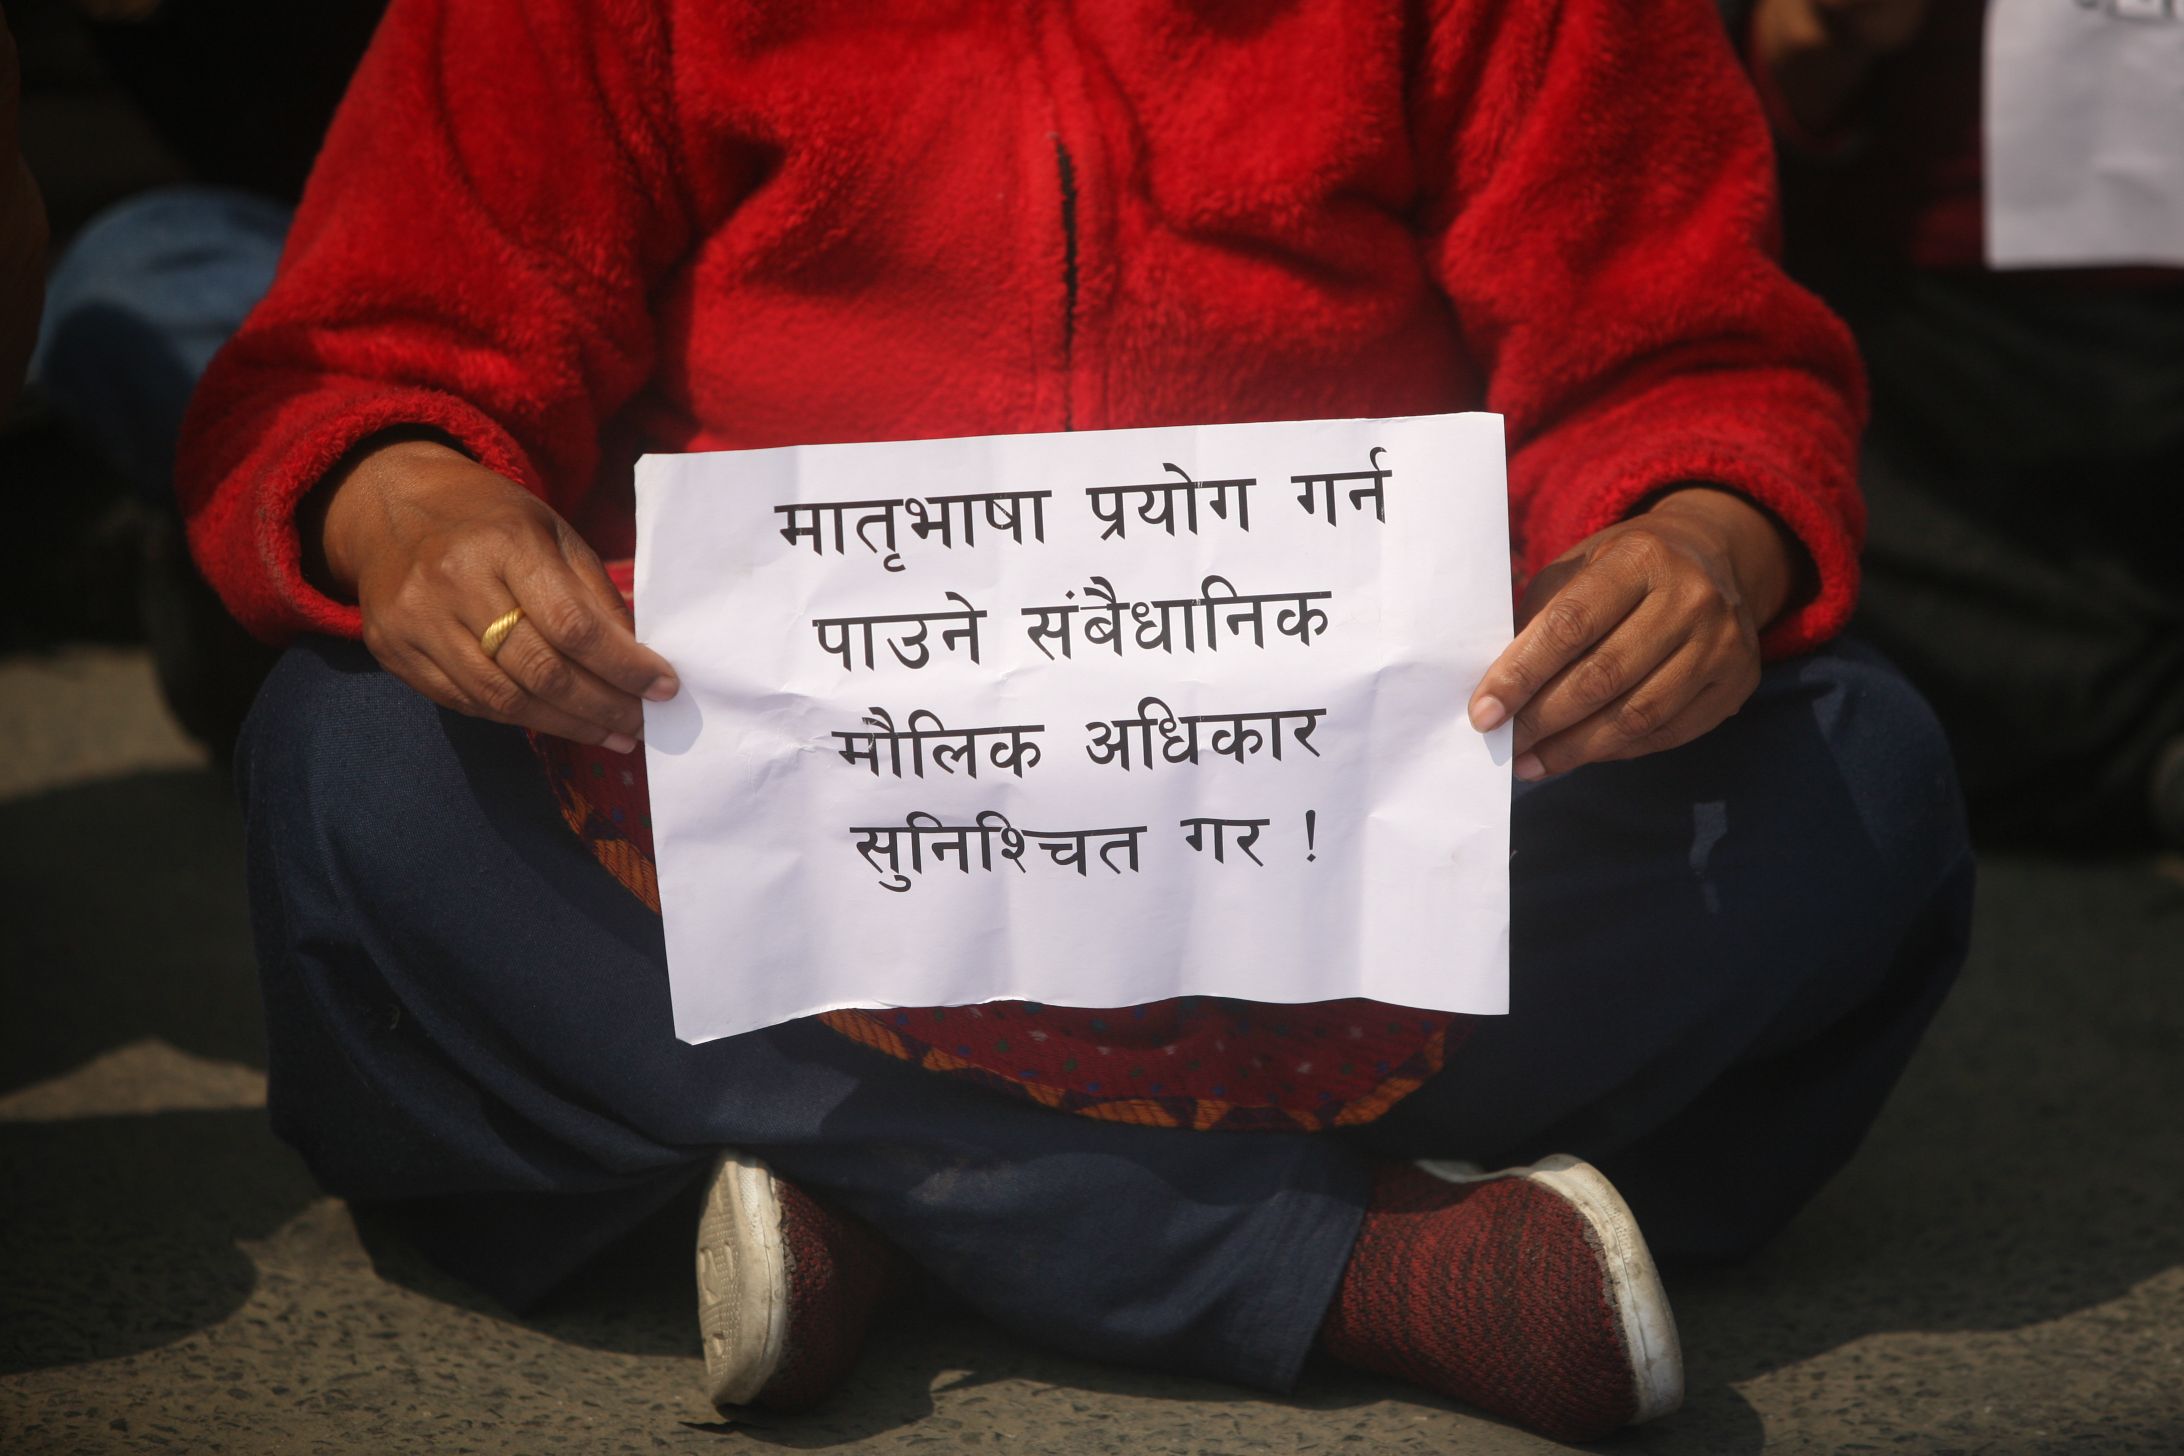 मातृभाषा प्रयोग गर्न
पाउने संबैधानिक
मौलिक अधिकार
सुनिश्चित गर !